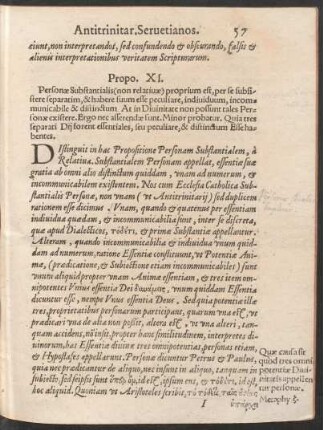 Antitrinitar. Seruetianos. 57
ciunt, non interpretandos, sed confundendo & obscurando, falsis &
alienis interpretationibus veritatem Scripturarum.
Propo. XI.
Personæ Substantialis (non relatiuæ) proprium est, per se subsi-
stere separatim, & habere suum esse peculiare, indiuiduum, incom-
municabile & distinctum. At in Diuinitate non possunt tales Per-
sonæ existere. Ergo nec asserendæ sunt. Minor probatur. Quia tres
separati Different essentiales, seu peculiare, & distinctum Esse ha-
bentes.
DIstinguit in hac Propositione Personam Substantialem, à
Relatiua. Substantialem Personam appellat, essentiæ suæ
gratia ab omni alio distinctum quiddam, vnam ad numerum, &
incommunicabilem existentem. Nos cum Ecclesia Catholica Sub-
stantialis Personæ, non vnam (vt Antitrinitarij) sed duplicem
rationem esse dicimus. Vnam, quando & quatenus per essentiam
indiuidua quædam, & incommunicabilia sunt, inter se discreta,
quæ apud Dialecticos, & primæ Substantiæ appellantur.
Alteram, quando incommunicabilia & indiuidua vnum quid-
dam ad numerum, ratione Essentiæ constituunt, vt Potentiæ Ani-
mæ, (prædicatione, & Subiectione etiam incommunicabiles) sunt
vnum aliquid propter vnam Animæ essentiam, & tres item om-
nipotentes Vnius essentiæ Dei vnum quiddam Essentia
dicuntur esse, nempe Vnus essentia Deus. Sed quia potentiæ illæ
tres, proprietatibus personarum participant, quarum vna est, vt
prædicari vna de alia non possit, altera est, vt vna alteri, tan-
quam accidens, non insit, propter hanc similitudinem, interpretes di-
uinorum, has Essentiæ diuinæ tres omnipotentias, personas etiam,
& Hypostases appellarunt. Personæ dicuntur Petrus & Paulus,
quia nec prædicantur de aliquo, nec insunt in aliquo, tanquam in
subiecto, sed seipsis sunt id est, ipsum ens, & id est,
hoc aliquid. Quoniam vt Aristoteles scribit,
I
Quæ causa sit
quod tres omni
potentiæ Diui-
nitatis appellen
tur personæ.
Metaphy.